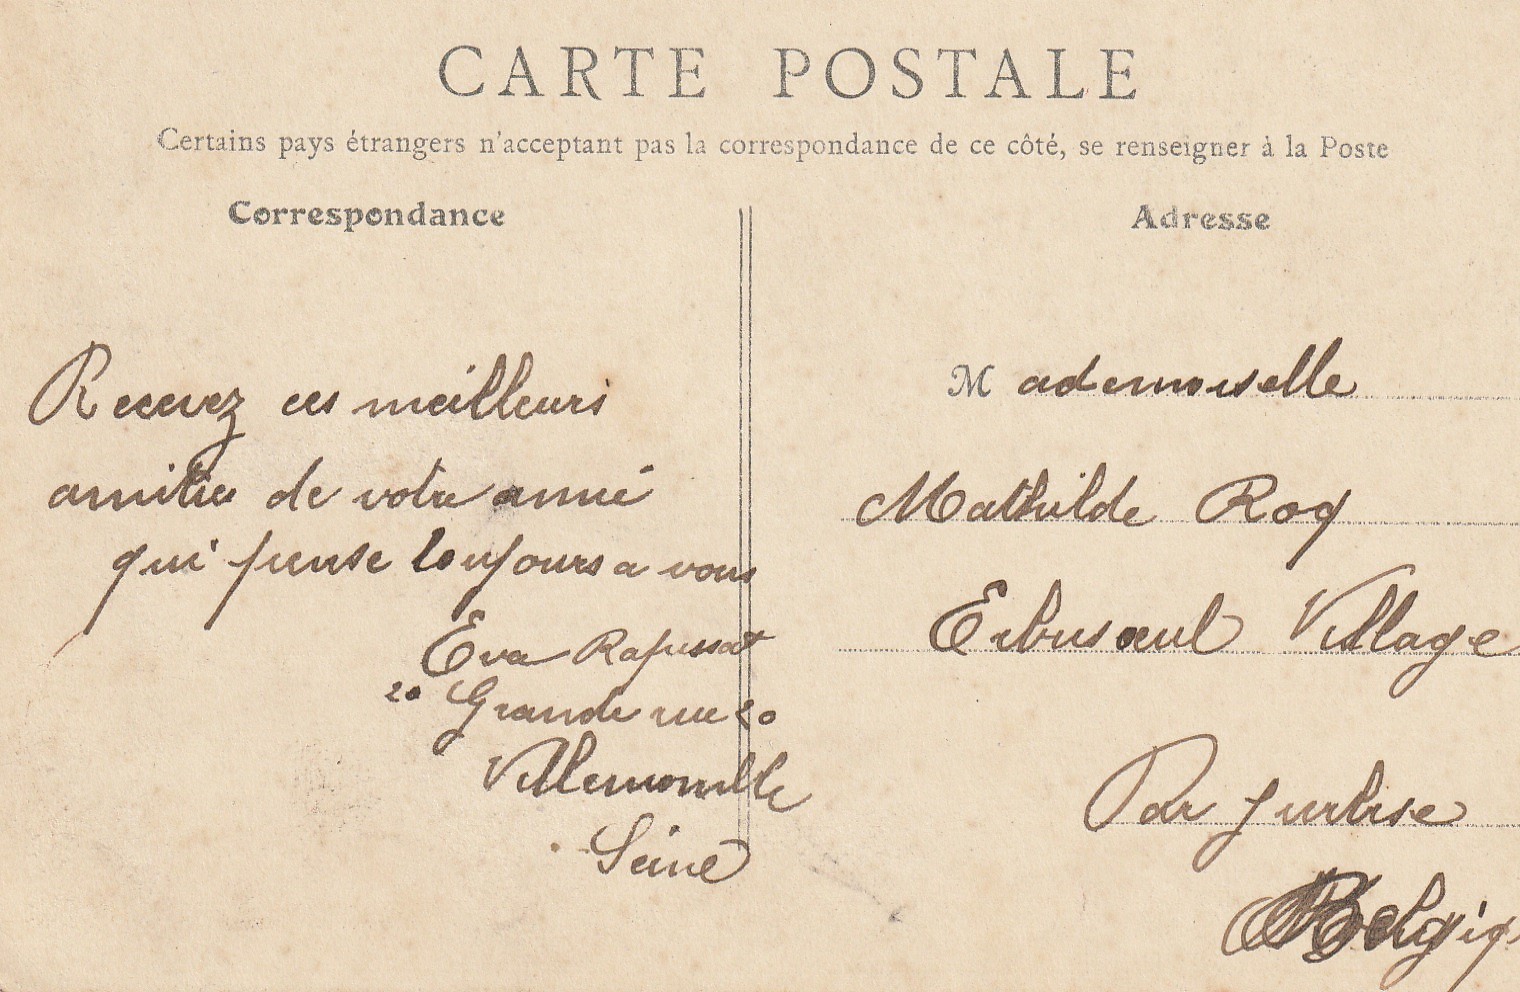 CARTE POSTALE
Certains pays étrangers n'acceptant pas la correspondance de ce côté, se renseigner à la Poste
Correspondance
Adresse
Recevez ces meilleurs
amitiés de votre amie
qui pense toujours a vous
Eva
20 Grande rue 20
Villemomble
Seine
Mademoiselle
Mathilde Roq
Erbisœul Village
Par Jurbise
Belgiq